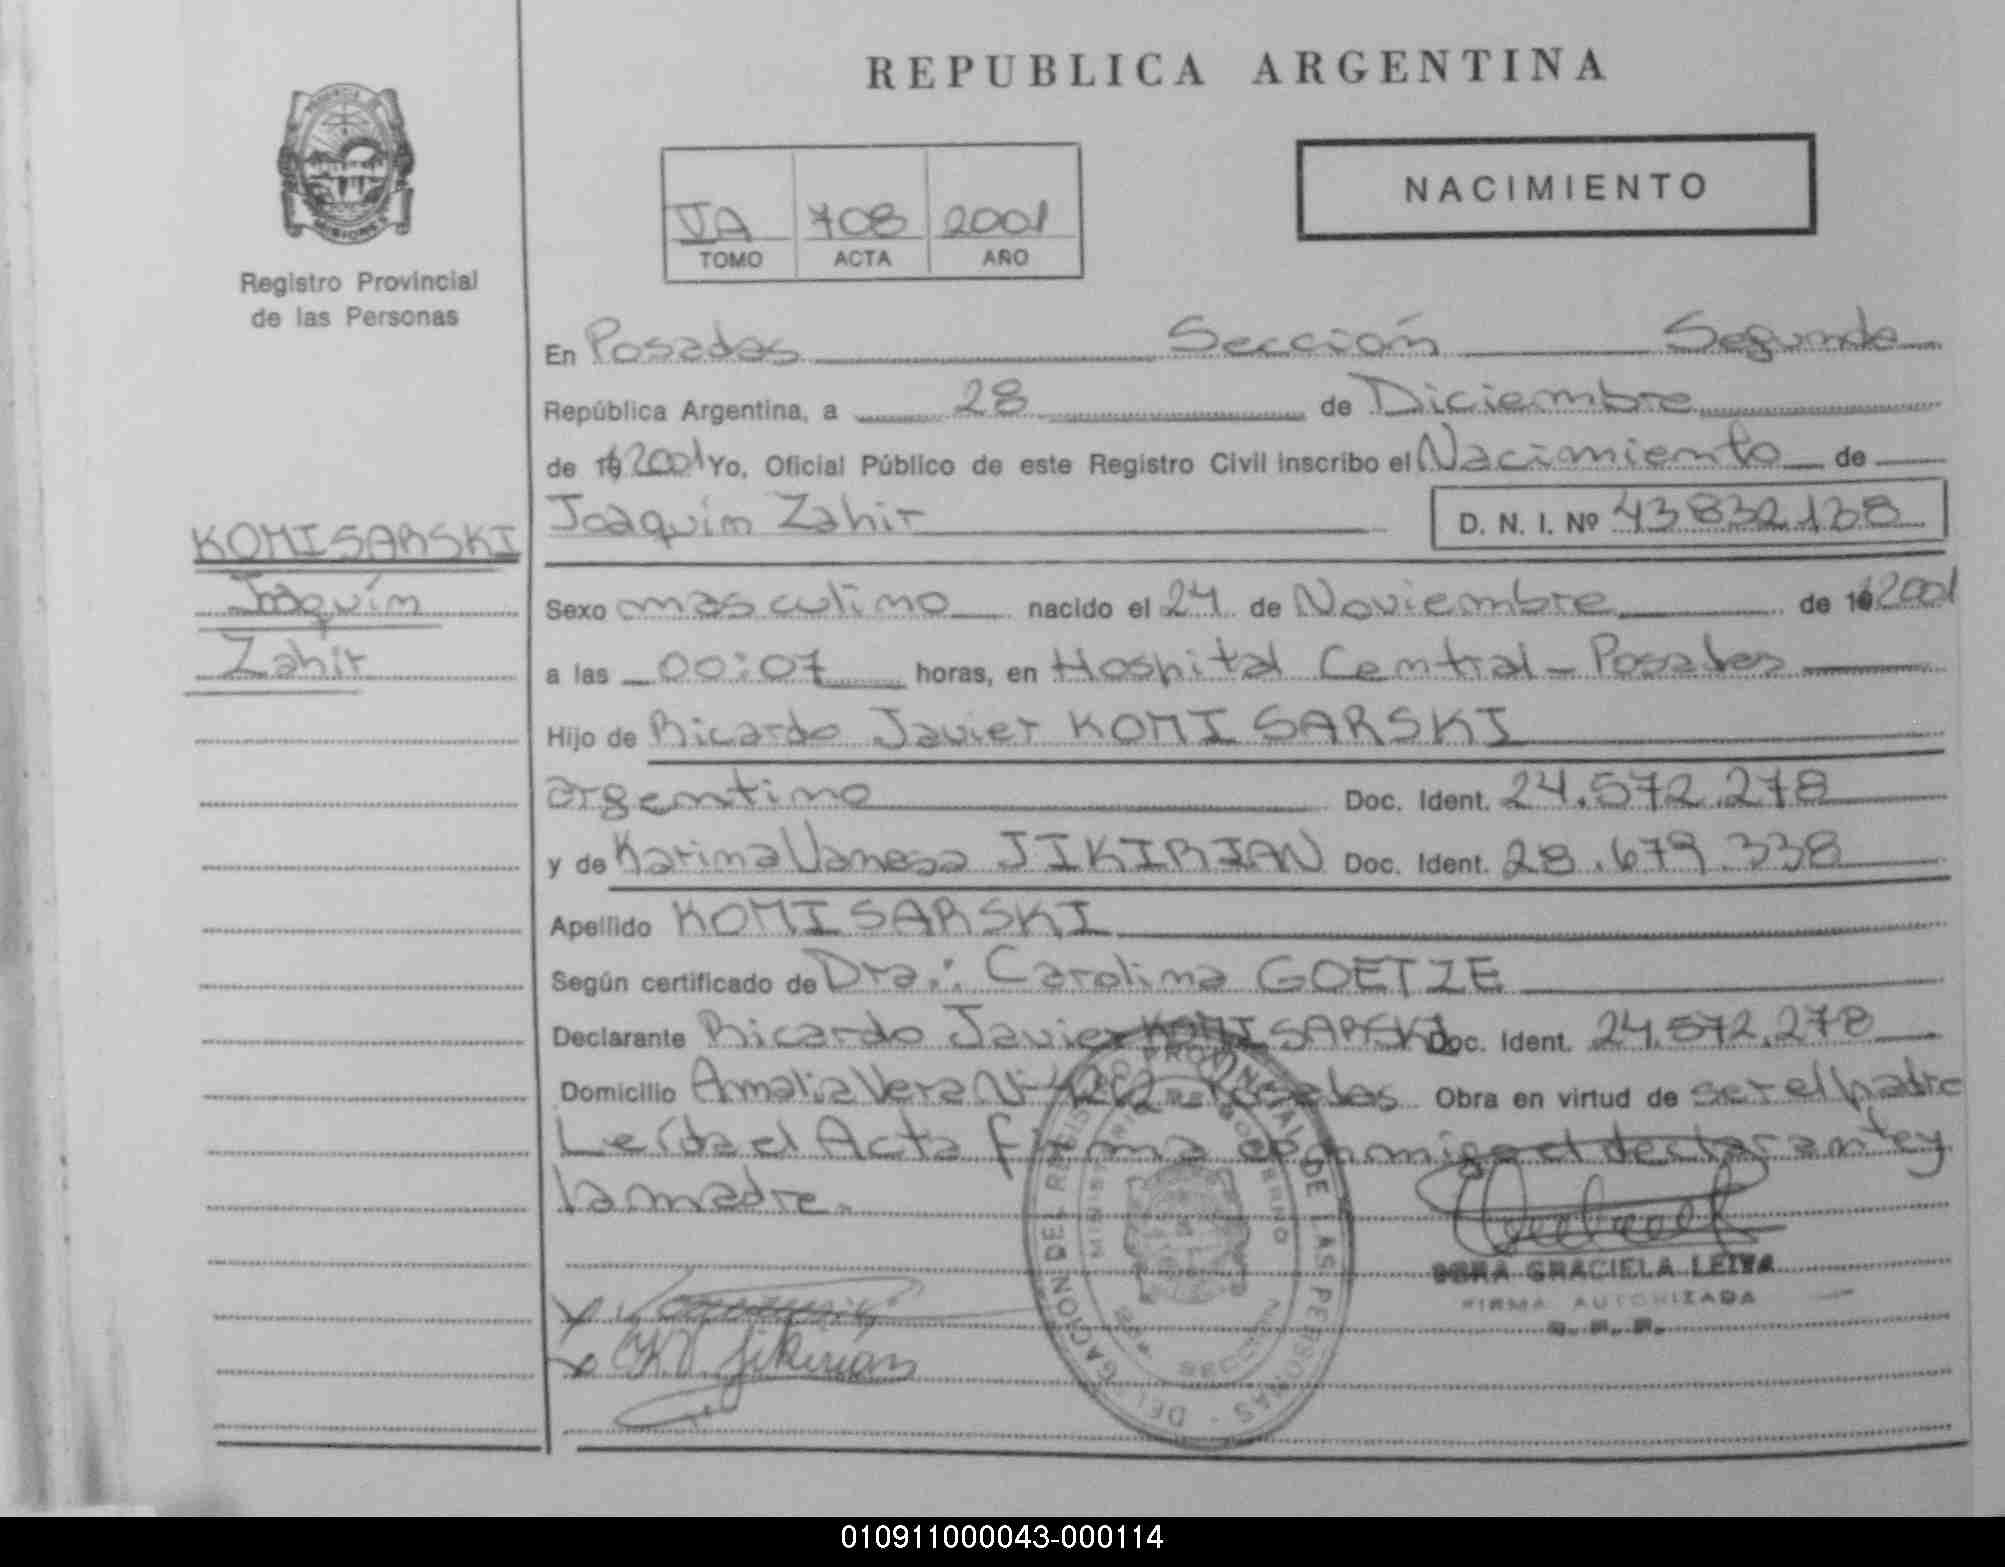 REPUBLICA ARGENTINA
PROVINCIA DE
MISIONES
Registro Provincial
de las Personas
VA 708 2001
TOMO ACTA AÑO
NACIMIENTO
En Posadas Sección Segunda
República Argentina, a 28 de Diciembre
de 19 2001 Yo, Oficial Público de este Registro Civil inscribo el Nacimiento de
Joaquím Zahir D. N. I. Nº 43832138
KOMISARSKI
Joaquím
Zahir
Sexo masculino nacido el 24 de Noviembre de 19 2001
a las 00:07 horas, en Hospital Central - Posadas
Hijo de Ricardo Javier KOMISARSKI
argentino Doc. Ident. 24.572.278
y de Karina Vanesa JIKIRIAN Doc. Ident. 28.679.338
Apellido KOMISARSKI
Según certificado de Dra.: Carolina GOETZE
Declarante Ricardo Javier KOMISARSKI Doc. Ident. 24.572.278
Domicilio Amalia Vera Nº Posadas Obra en virtud de ser el padre
Leída el Acta firma conmigo el declarante y
la madre.
DELEGACION DEL REGISTRO PROVINCIAL DE LAS PERSONAS
MINISTERIO DE GOBIERNO
SECCION
GRACIELA LEIVA
FIRMA AUTORIZADA
R. P. P.
K.V. Jikirian
010911000043-000114